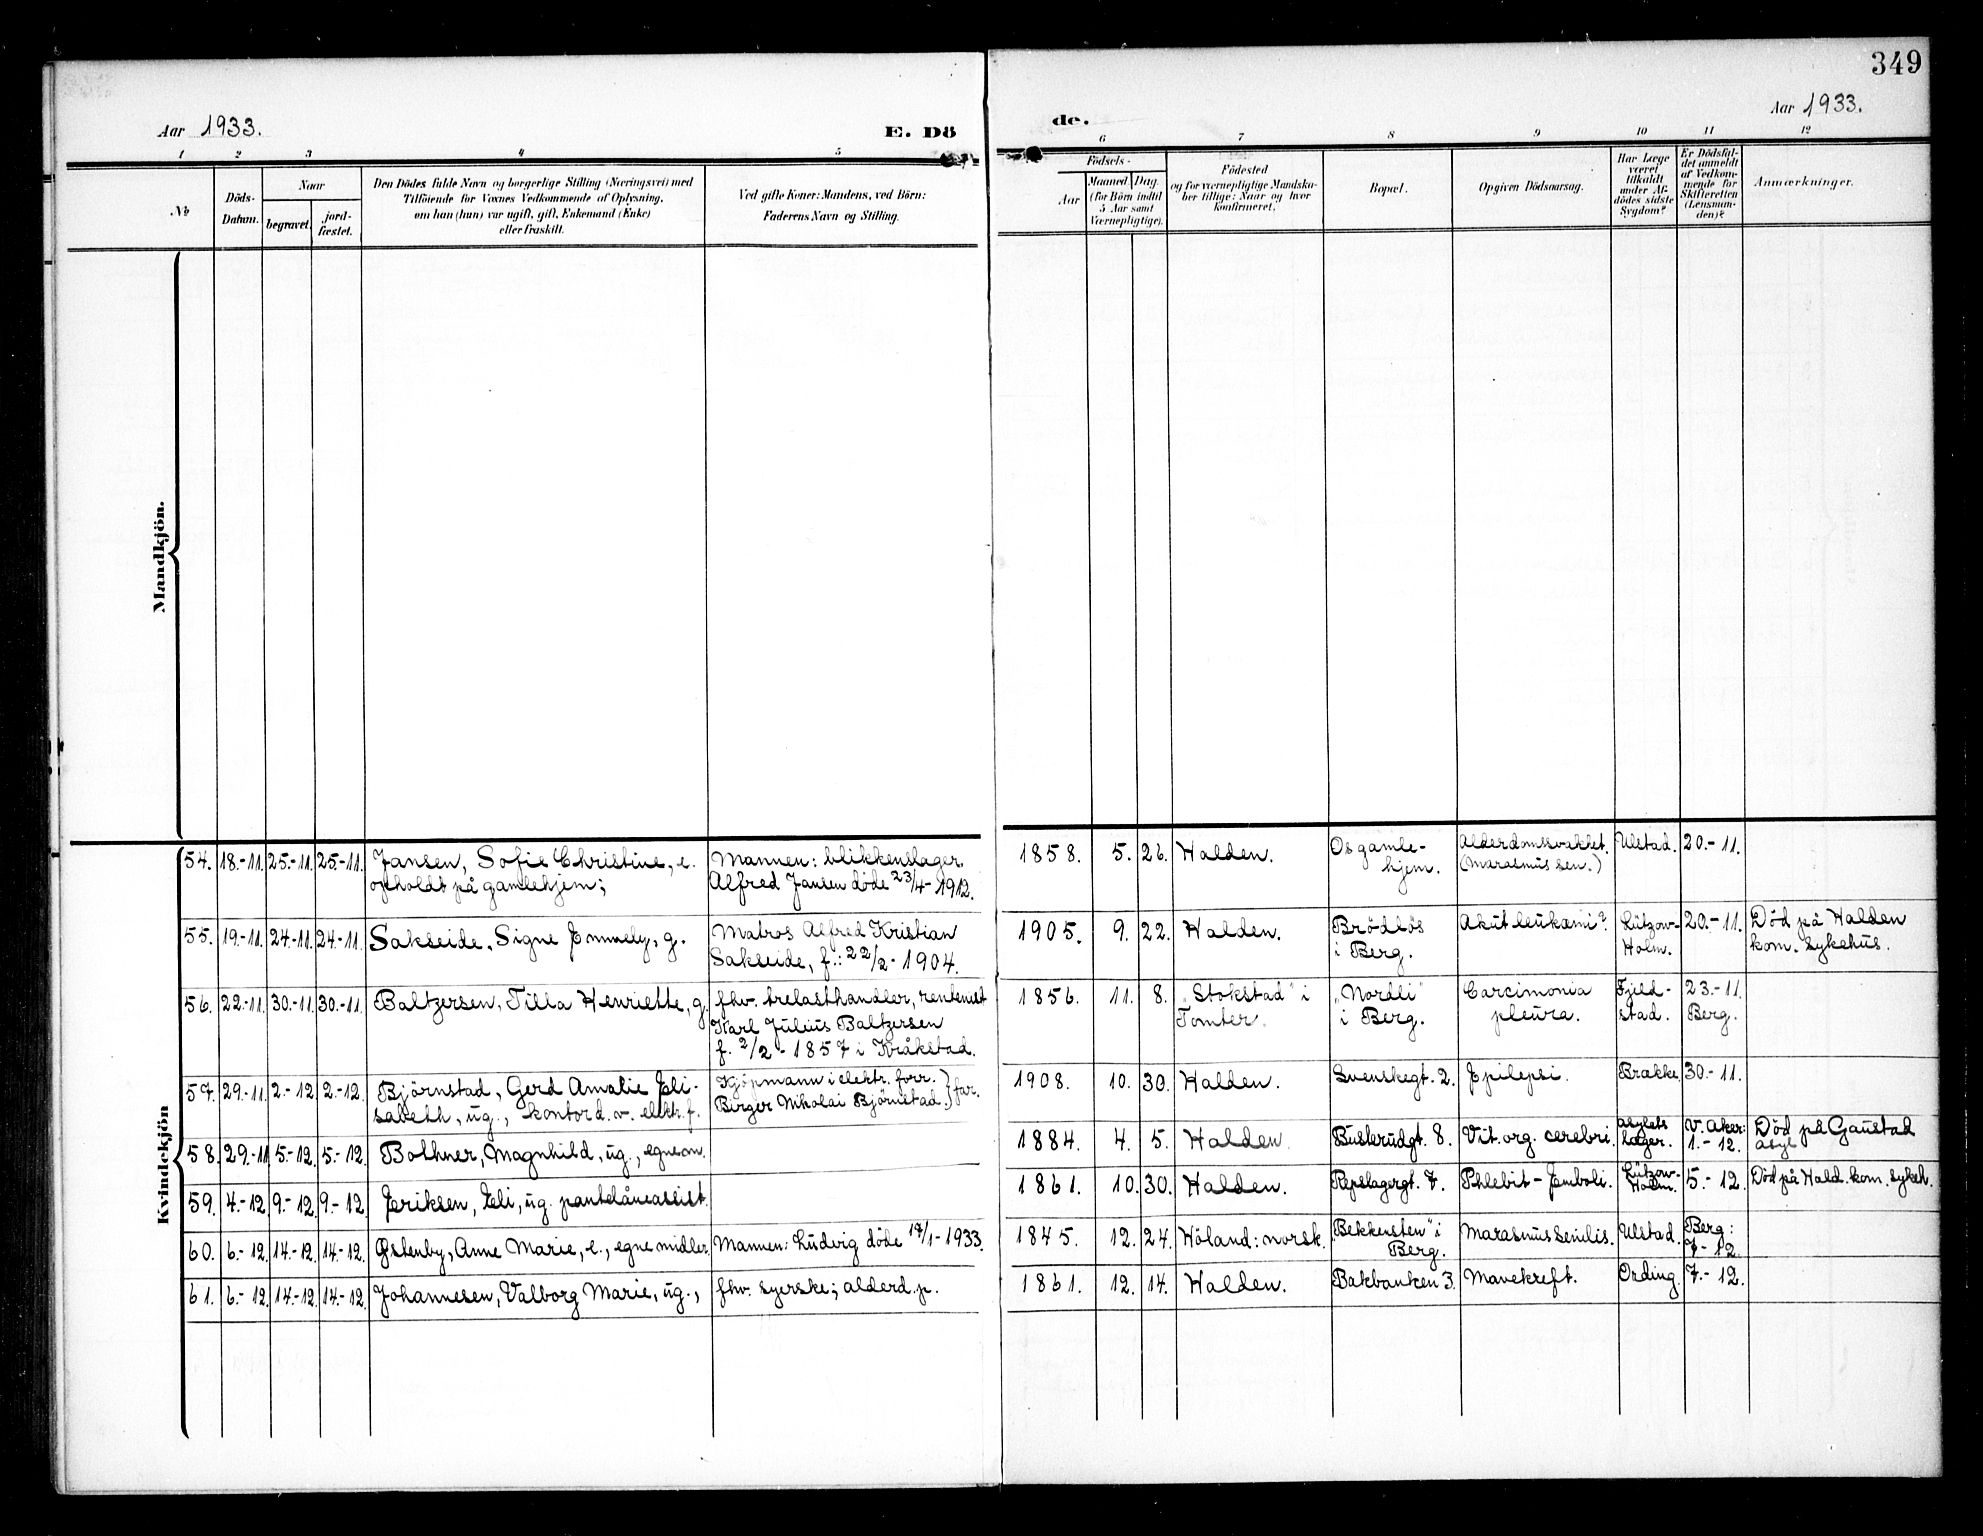 349
Aar 1933.
E. Dö
de.
Aar 1933.
1 2 3 4 5
6 7 8 9 10 11 12
No
Döds-
Datum.
Naar
begravet.
jord-
fæstet.
Den Dödes fulde Navn og borgerlige Stilling (Næringsvei) med
Tilföiende for Voxnes Vedkommende af Oplysning,
om han (hun) var ugift, gift, Enkemand (Enke)
eller fraskilt.
Ved gifte Koner: Mandens, ved Börn:
Faderens Navn og Stilling.
Födsels-
Aar
Maaned Dag.
(for Börn indtil
5 Aar samt
Værnepligtige).
Födested
og for værnepligtige Mandska-
ber tillige: Naar og hvor
konfirmeret.
Bopæl.
Opgiven Dödsaarsag.
Har Læge
været
tilkaldt
under Af-
dödes sidste
Sygdom?
Er Dödsfal-
det anmeldt
af Vedkom-
mende for
Skifteretten
(Lensman-
den)?
Anmærkninger.
Mandkjön.
Kvindekjön
54. 18.-11. 25.-11. 25.-11. Jansen, Sofie Christine, e.
opholdt på gamlehjem;
Mannen: blikkenslager
Alfred Jansen döde 23/4-1912.
1858. 5. 26. Halden.
Os gamle-
hjem.
Alderdomssvakhet.
(Marasmus sen.)
Ulstad. 20.-11.
55. 19.-11. 24.-11. 24.-11. Sakseide, Signe Emmely, g.
Matros Alfred Kristian
Sakseide, f.: 22/2-1904.
1905. 9. 22. Halden.
Brödlös
i Berg.
Akut leukæmi?
Lützow-
Holm.
20.-11.
Död på Halden
kom. sykehus.
56. 22.-11. 30.-11. 30.-11. Baltzersen, Tilla Henriette, g.
fhv. trelasthandler, rentenist
Karl Julius Baltzersen
f. 2/2-1857 i Kråkstad.
1856. 11. 8. "Stokstad" i
Tomter.
"Nordli"
i Berg.
Carcimonia
pleura.
Fjeld-
stad.
23.-11.
Berg.
57. 29.-11. 2.-12. 2.-12. Björnstad, Gerd Amalie Eli-
sabeth, ug., kontord. v. elektr. f.
Kjöpmann i elektr. forr.
Birger Nikolai Björnstad. } far.
1908. 10. 30. Halden. Svenskegt. 2. Epilepsi. Brække. 30.-11.
58. 29.-11 5.-12. 5.-12. Bothner, Magnhild, ug., egne m.
1884. 4. 5. Halden. Buskrudgt. 8. Vit. org. cerebri.
asylets
læger.
V. Aker:
1.-12.
Död på Gaustad
asyl
59. 4.-12. 9.-12. 9.-12. Eriksen, Eli, ug. pantelåneassist.
1861. 10. 30. Halden. Repslagergt. 7. Phlebit-Emboli.
Lützow-
Holm.
5.-12. Död på Hald. kom. sykeh.
60. 6.-12. 14.-12. 14.-12. Østenby, Anne Marie, e., egne midler.
Mannen: Ludvig döde 17/1-1933.
1845. 12. 24. Höland: norsk.
"Bekkensten" i
Berg.
Marasmus senilis. Ulstad.
Berg:
7-12.
61. 6.-12. 14.-12. 14.-12. Johannesen, Valborg Marie, ug.,
fhv. syerske; alderd. p.
1861. 12. 14. Halden. Bakbanken 3. Mavekreft. Ording. 7.-12.